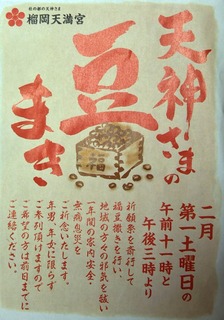 杜の都の天神さま
榴岡天満宮
天神さまの
豆
まき
二月
第一土曜日の
午前十一時と
午後三時より
祈願祭を斎行して
福豆撒きを行い、
地域の方々の邪気を祓い
1年間の家内安全・
無病息災を
ご祈念いたします。
年男、年女に限らず
ご参列頂けますので
ご希望の方は前日までに
ご連絡ください。